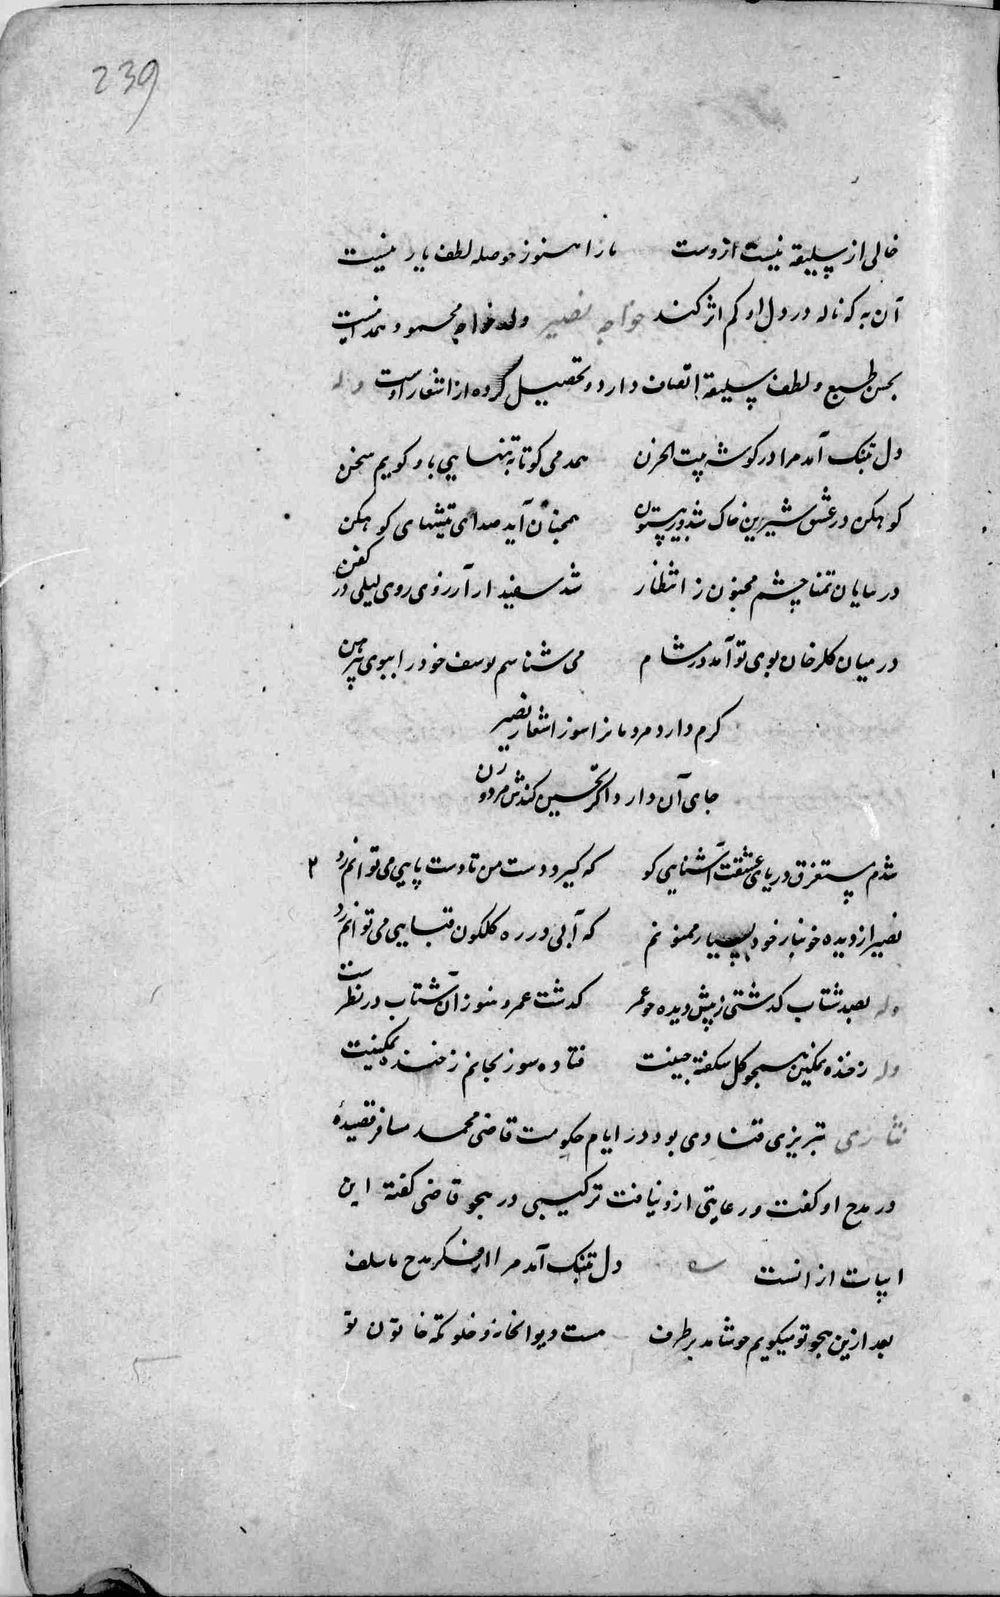 239
خالی از سلیقه نیست ازوست ما را هنوز حوصله لطف یار نیست
آن به که ناله در دل او کم اثر کند خواجه نصیر ولد خواجه محمود همدانیست
بحسن طبع و لطف سلیقه اتصاف دارد و تحصیل کرده از اشعار اوست وله
دل تنک آمد مرا در کوشه بیت الحزن همدمی کو تا به تنهایی باو کویم سخن
کوهکن در عشق شیرین خاک شد در بیستون همچنان آید صدای تیشهای کوهکن
در بیابان تمنا چشم مجنون ز انتظار شد سفید از آرزوی روی لیلی در کفن
در میان کلرخان بوی تو آمد در مشام می شناسم یوسف خود را ببوی پیرهن
کرم دارد مردمانرا سوز اشعار نصیر
جای آن دارد اکر تحسین کنندش مرد و زن
شدم مستغرق دریای عشقت آشنایی کو که کیرد دست من تا دست پایی می توانم زد ۲
نصیر از دیده خونبار خود بسیار ممنونم که آبی در ره کلکون قبایی می توانم زد
وله بصد شتاب کدشتی ز پیش دیده چو عمر کدشت عمر و هنوز آن شتاب در نظرست
وله ز خنده نمکین همچو کل شکفته جبینت فتاده سوز بجانم ز خنده نمکینت
نثاری تبریزی قنادی بود در ایام حکومت قاضی محمد مسافر قصیدهٔ
در مدح او کفت و رعایتی ازو نیافت ترکیبی در هجو قاضی کفته این
ابیات از انست دل تنک آمد مرا از فکر مدح ما سلف
بعد ازین هجو تو میکویم خوشامد بر طرف هست دیوانخانه و خلوتکه خاتون تو